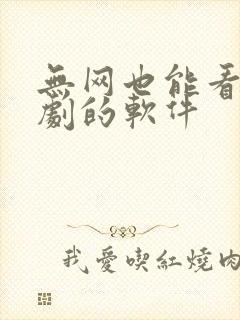 無网也能看
劇的軟件
我愛喫紅燒肉